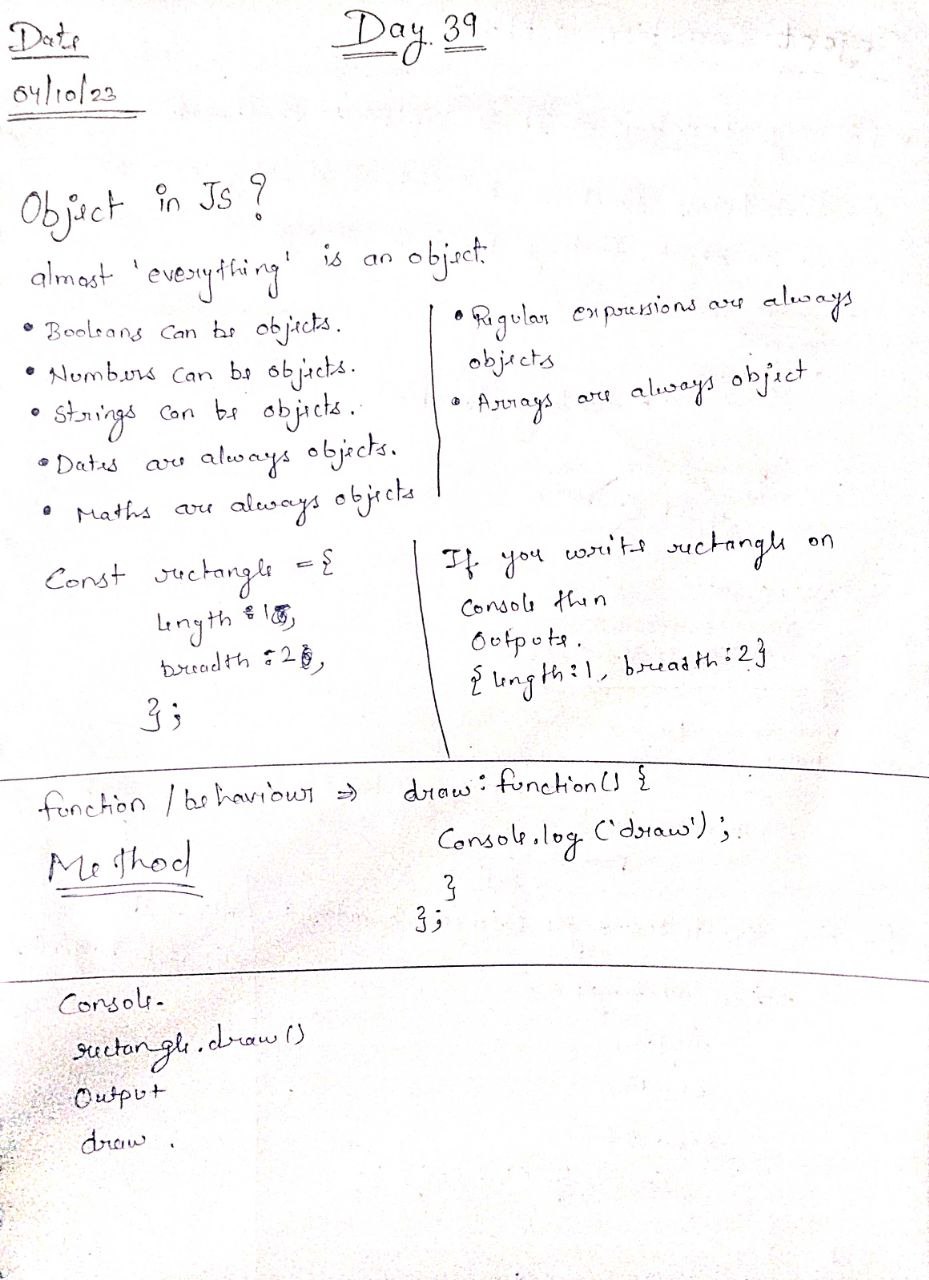 Date
Day. 39
04/10/23
Object in JS ?
almost 'everything' is an object.
• Booleans can be objects.
• Numbers can be objects.
• Strings can be objects.
• Dates are always objects.
• Maths are always objects
• Regular expressions are always
objects
• Arrays are always object
Const rectangle = {
length : 1,
breadth : 2,
};
If you write rectangle on
Console then
Outputs.
{ length : 1, breadth : 2 }
function / behaviour ⇒
Method
draw : function() {
Console.log ('draw') ;
}
};
Console.
rectangle.draw()
Output
draw .